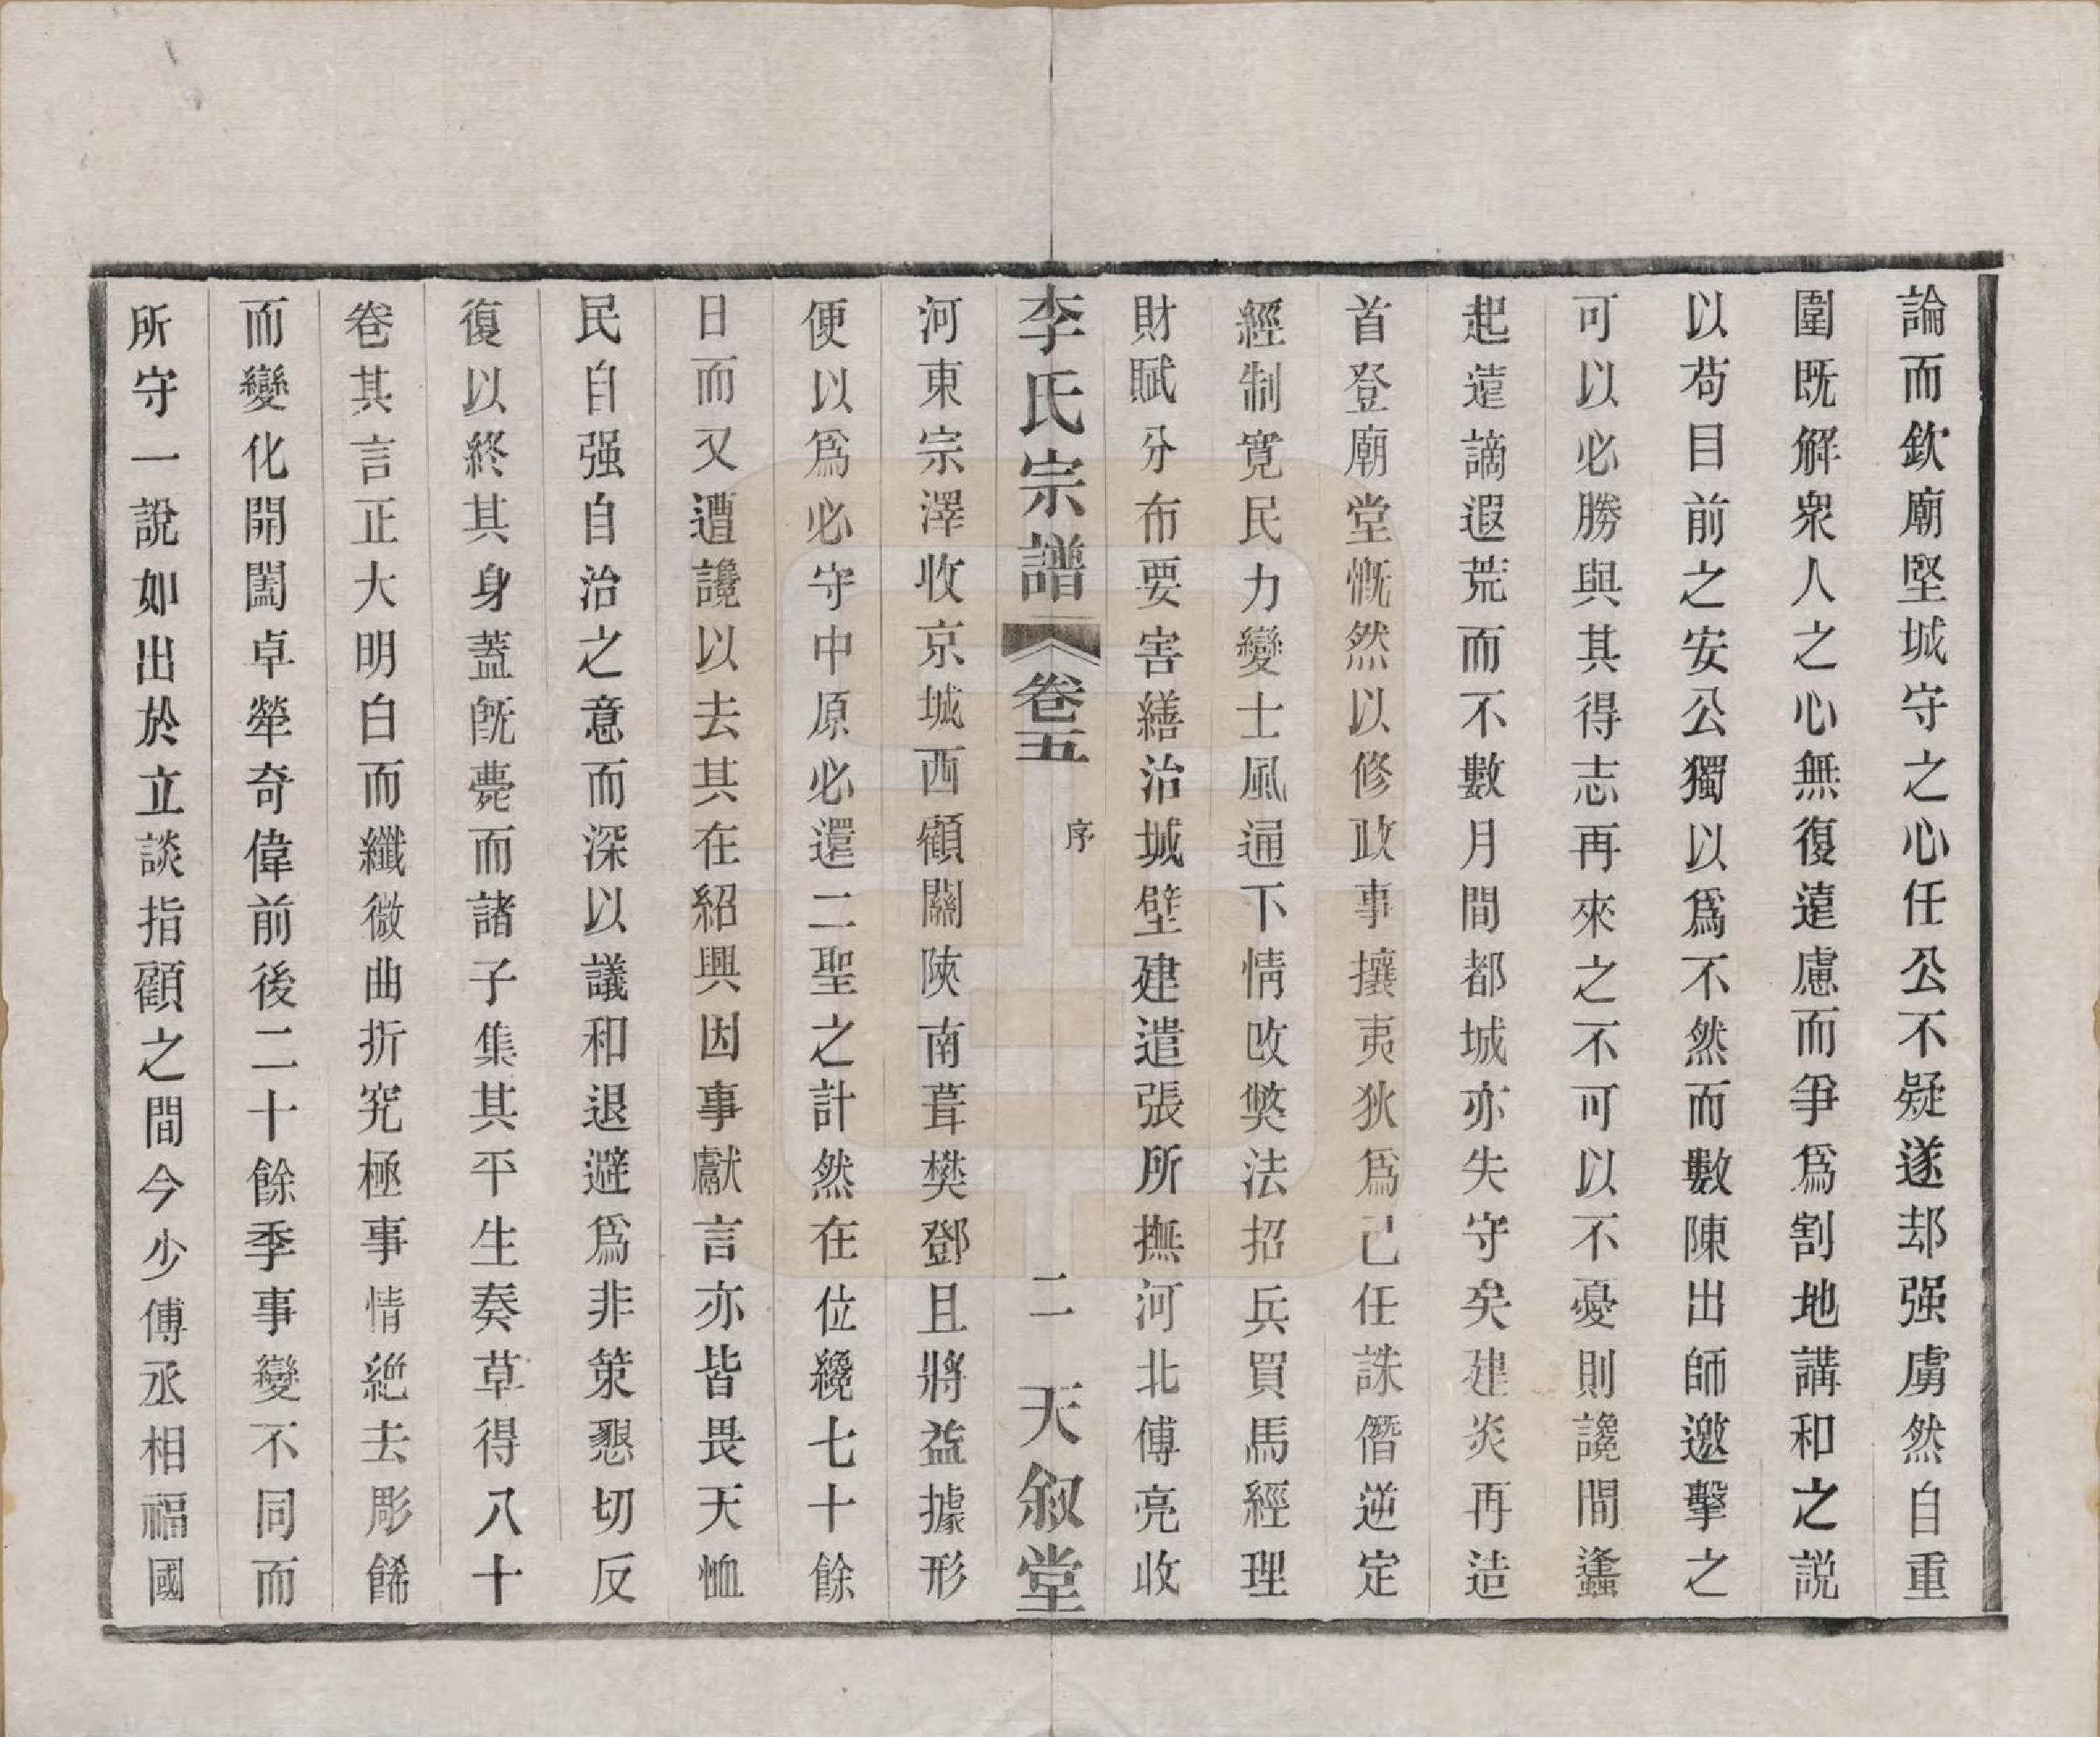 論而欽廟堅城守之心任公不疑遂却强虜然自重
圍既解衆人之心無復遠慮而爭爲割地講和之説
以苟目前之安公獨以爲不然而數陳出師邀擊之
可以必勝與其得志再來之不可以不憂則讒間蠭
起遠謫遐荒而不數月間都城亦失守矣建炎再造
首登廟堂慨然以修政事攘夷狄爲己任誅僭逆定
經制寛民力變士風通下情改獘法招兵買馬經理
財賦分布要害繕治城壁建遣張所撫河北傅亮收
李氏宗譜 卷五 序 二 天叙堂
河東宗澤收京城西顧關陝南葺樊鄧且將益據形
便以爲必守中原必還二聖之計然在位纔七十餘
日而又遭讒以去其在紹興因事獻言亦皆畏天恤
民自强自治之意而深以議和退避爲非策懇切反
復以終其身蓋旣薨而諸子集其平生奏草得八十
卷其言正大明白而纖微曲折究極事情絶去彫餙
而變化開闔卓犖奇偉前後二十餘季事變不同而
所守一説如出於立談指顧之間今少傅丞相福國